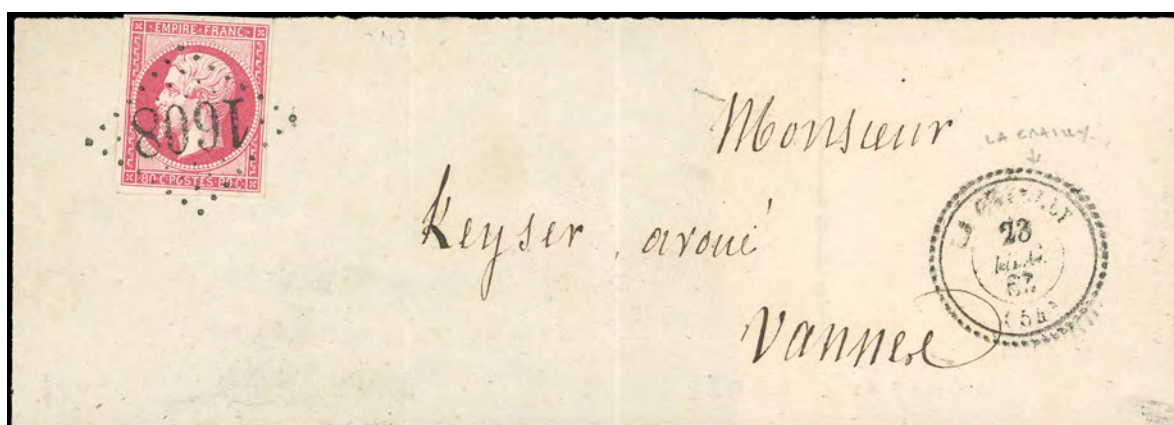 EMPIRE · FRANC ·
1608
80 C · POSTES · 80 C
Monsieur
Keyser, avoué
Vannes
LA GACILLY
23
62
(54)